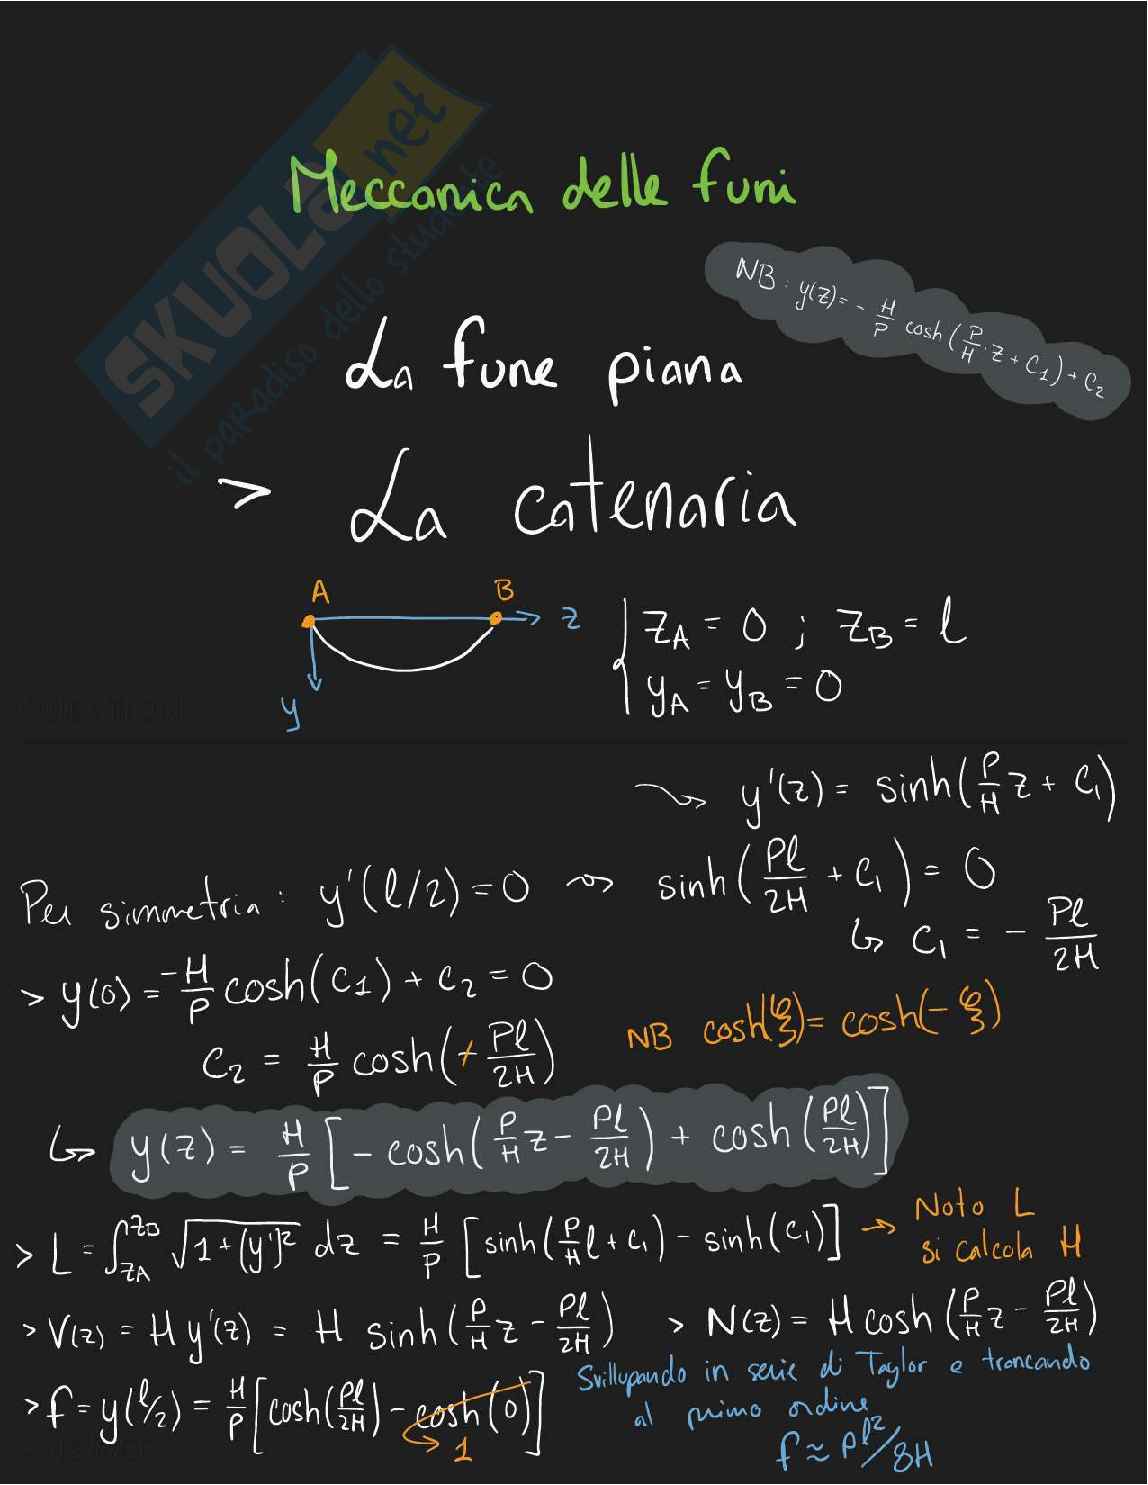 SKUOLA.net
il paradiso dello studente
Meccanica delle funi
NB: y(z) = - H/P cosh (P/H · z + C1) + C2
La fune piana
> La catenaria
A B
z
y
{ zA = 0 ; zB = l
yA = yB = 0
y'(z) = sinh(P/H z + C1)
Per simmetria: y'(l/2) = 0 ⇝ sinh(Pl/2H + C1) = 0
↳ C1 = - Pl/2H
> y(0) = -H/P cosh(C1) + C2 = 0
NB cosh(ξ) = cosh(-ξ)
C2 = H/P cosh(+ Pl/2H)
↳ y(z) = H/P [- cosh(P/H z - Pl/2H) + cosh(Pl/2H)]
> L = ∫zA^zB √1+(y')² dz = H/P [sinh(P/H l + C1) - sinh(C1)] → Noto L
si calcola H
> V(z) = H y'(z) = H sinh(P/H z - Pl/2H) > N(z) = H cosh(P/H z - Pl/2H)
> f = y(l/2) = H/P [cosh(Pl/2H) - cosh(0)]
→ 1
Svillupando in serie di Taylor e troncando
al primo ordine
f ≈ Pl²/8H